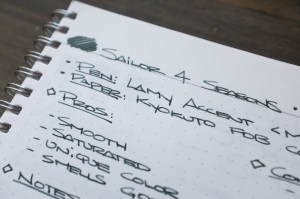 SAILOR 4 SEASONS
• PEN: LAMY ACCENT <M
• PAPER: KYOKUTO FOB
◇ PROS:
- SMOOTH
- SATURATED
- UNIQUE COLOR
- SMELLS GO
◇ CO
◇ NOTES